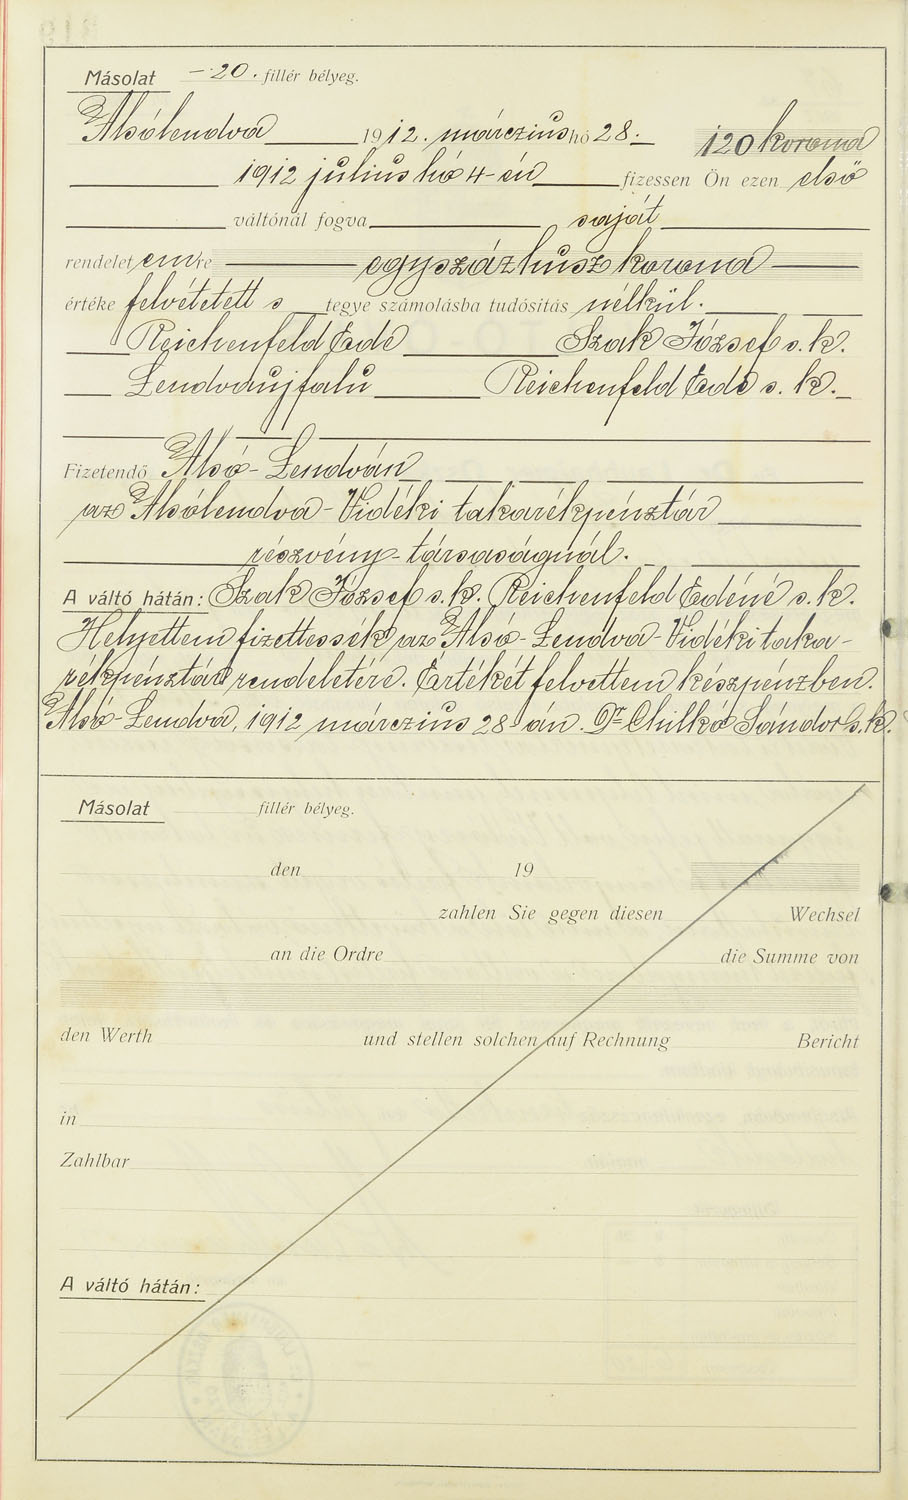 Másolat -20. fillér bélyeg.
Alsólendva 1912. márczius hó 28. 120 korona
1912 július hó 4-én fizessen Ön ezen első
váltónál fogva saját
rendeletemre egyszázhusz korona
értéke felvétetett s tegye számolásba tudósitás nélkül.
Reichenfeld Ede Szak József s. k.
Lendvaujfalu Reichenfeld Ede s. k.
Fizetendő Alsó-Lendván
az Alsólendva-Vidéki takarékpénztár
részvény-társaságnál.
A váltó hátán: Szak József s. k. Reichenfeld Edéné s. k.
Helyettem fizettessék az Alsó-Lendva-Vidéki taka-
rékpénztár rendeletére. Értékét felvettem készpénzben.
Alsó-Lendva, 1912 márczius 28-án. Dr Chilkó Sándor s. k.
Másolat fillér bélyeg.
den 19
zahlen Sie gegen diesen Wechsel
an die Ordre die Summe von
den Werth und stellen solchen auf Rechnung Bericht
in
Zahlbar
A váltó hátán: